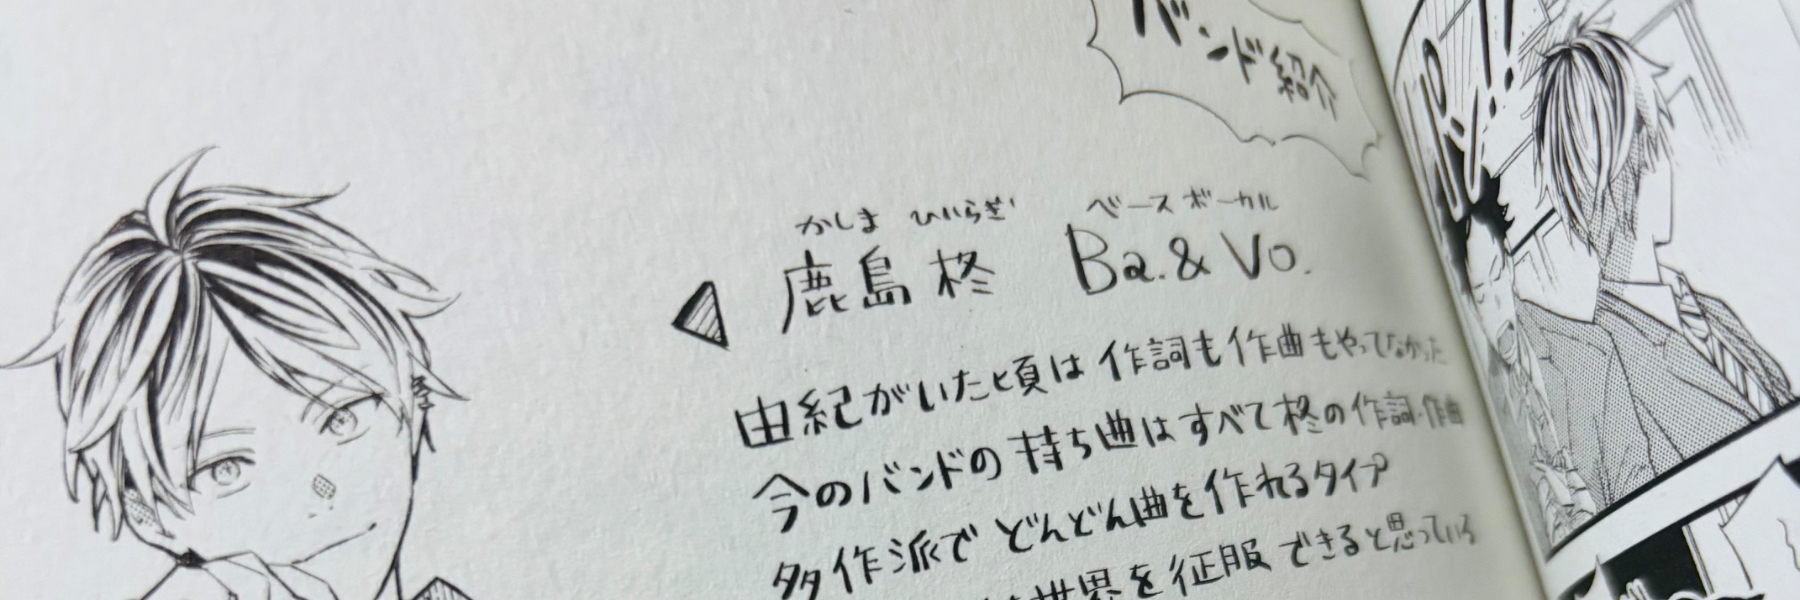 バンド紹介
かしま ひいらぎ ベース ボーカル
鹿島 柊 Ba.& Vo.
由紀がいた頃は作詞も作曲もやってなかった
今のバンドの持ち曲はすべて柊の作詞・作曲
多作派でどんどん曲を作れるタイプ
世界を征服できると思っている